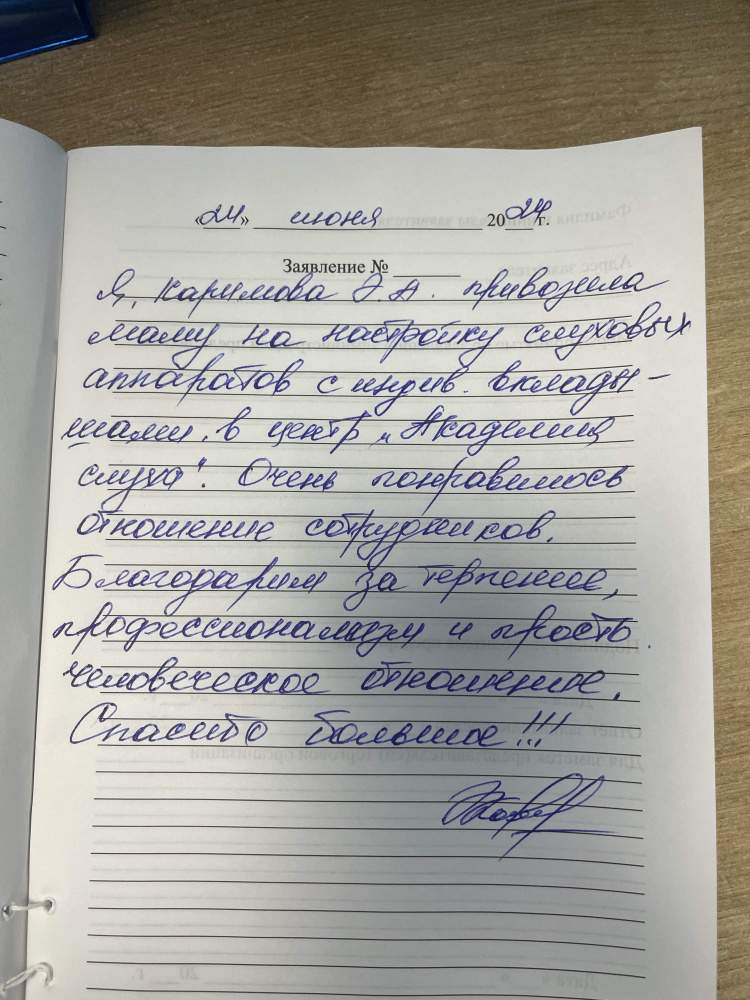 «24» июня 2024 г.
Заявление № ______
Я, Каримова Э.А. привозила
маму на настройку слуховых
аппаратов с индив. вклады-
шами, в центр „Академия
слуха". Очень понравилось
отношение сотрудников.
Благодарим за терпение,
профессионализм и просто
человеческое отношение.
Спасибо большое!!!